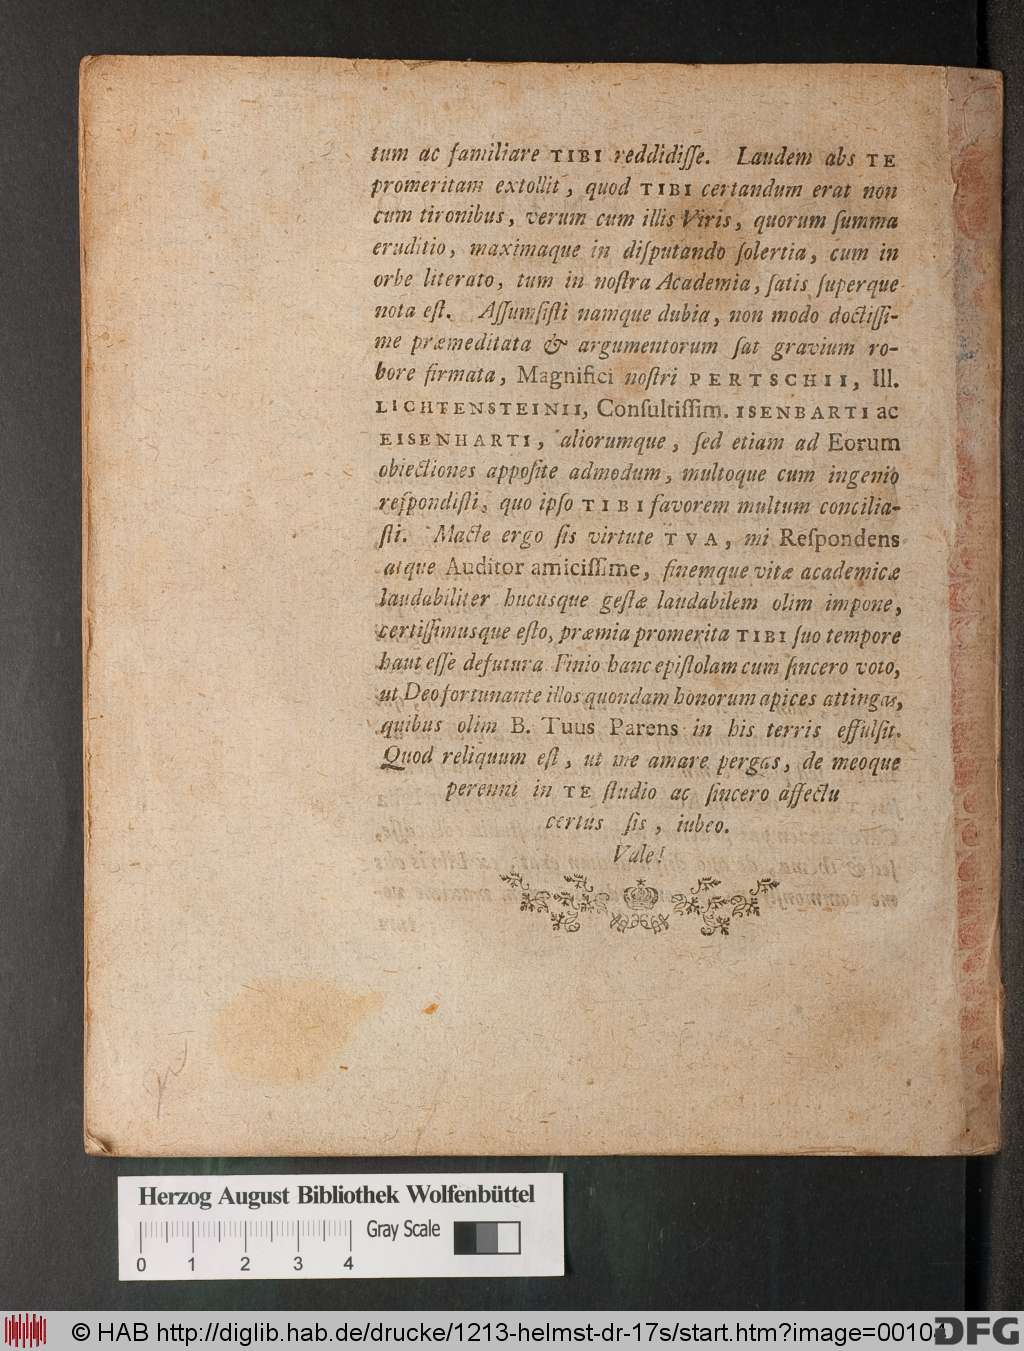 tum ac familiare TIBI reddidiſſe. Laudem abs TE
promeritam extollit, quod TIBI certandum erat non
cum tironibus, verum cum illis Viris, quorum ſumma
eruditio, maximaque in diſputando ſolertia, cum in
orbe literato, tum in noſtra Academia, ſatis ſuperque
nota eſt. Aſſumſiſti namque dubia, non modo doctiſſi-
me præmeditata & argumentorum ſat gravium ro-
bore firmata, Magnifici noſtri PERTSCHII, Ill.
LICHTENSTEINII, Conſultiſſim. ISENBARTI ac
EISENHARTI, aliorumque, ſed etiam ad Eorum
obiectiones appoſite admodum, multoque cum ingenio
reſpondiſti, quo ipſo TIBI favorem multum concilia-
ſti. Macte ergo ſis virtute TVA, mi Reſpondens
atque Auditor amiciſſime, finemque vitæ academicæ
laudabiliter hucusque geſtæ laudabilem olim impone,
certiſſimusque eſto, præmia promerita TIBI ſuo tempore
haut eſſe defutura Finio hanc epiſtolam cum ſincero voto,
ut Deo fortunante illos quondam honorum apices attingas,
quibus olim B. Tuus Parens in his terris effulſit.
Quod reliquum eſt, ut me amare pergas, de meoque
perenni in TE ſtudio ac ſincero affectu
certus ſis, iubeo.
Vale!
Herzog August Bibliothek Wolfenbüttel
Gray Scale
0 1 2 3 4
© HAB http://diglib.hab.de/drucke/1213-helmst-dr-17s/start.htm?image=00104
DFG